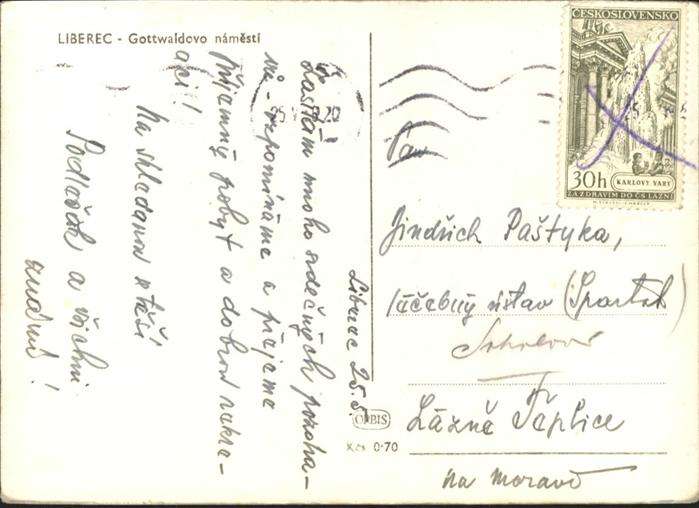 LIBEREC - Gottwaldovo náměstí
Liberec 25.5.
Zasílám mnoho srdečných pozdra-
vů - vzpomínáme a přejeme
příjemný pobyt a dobrou rekre-
aci!
Na shledanou se těší
a všichni
ČESKOSLOVENSKO
30h
KARLOVY VARY
ZA ZDRAVÍM DO ČS LÁZNÍ
Pan
Jindřich Paštyka,
léčebný ústav (Spartak)
Sokolovo
Lázně Teplice
na Moravě
ORBIS
0·70